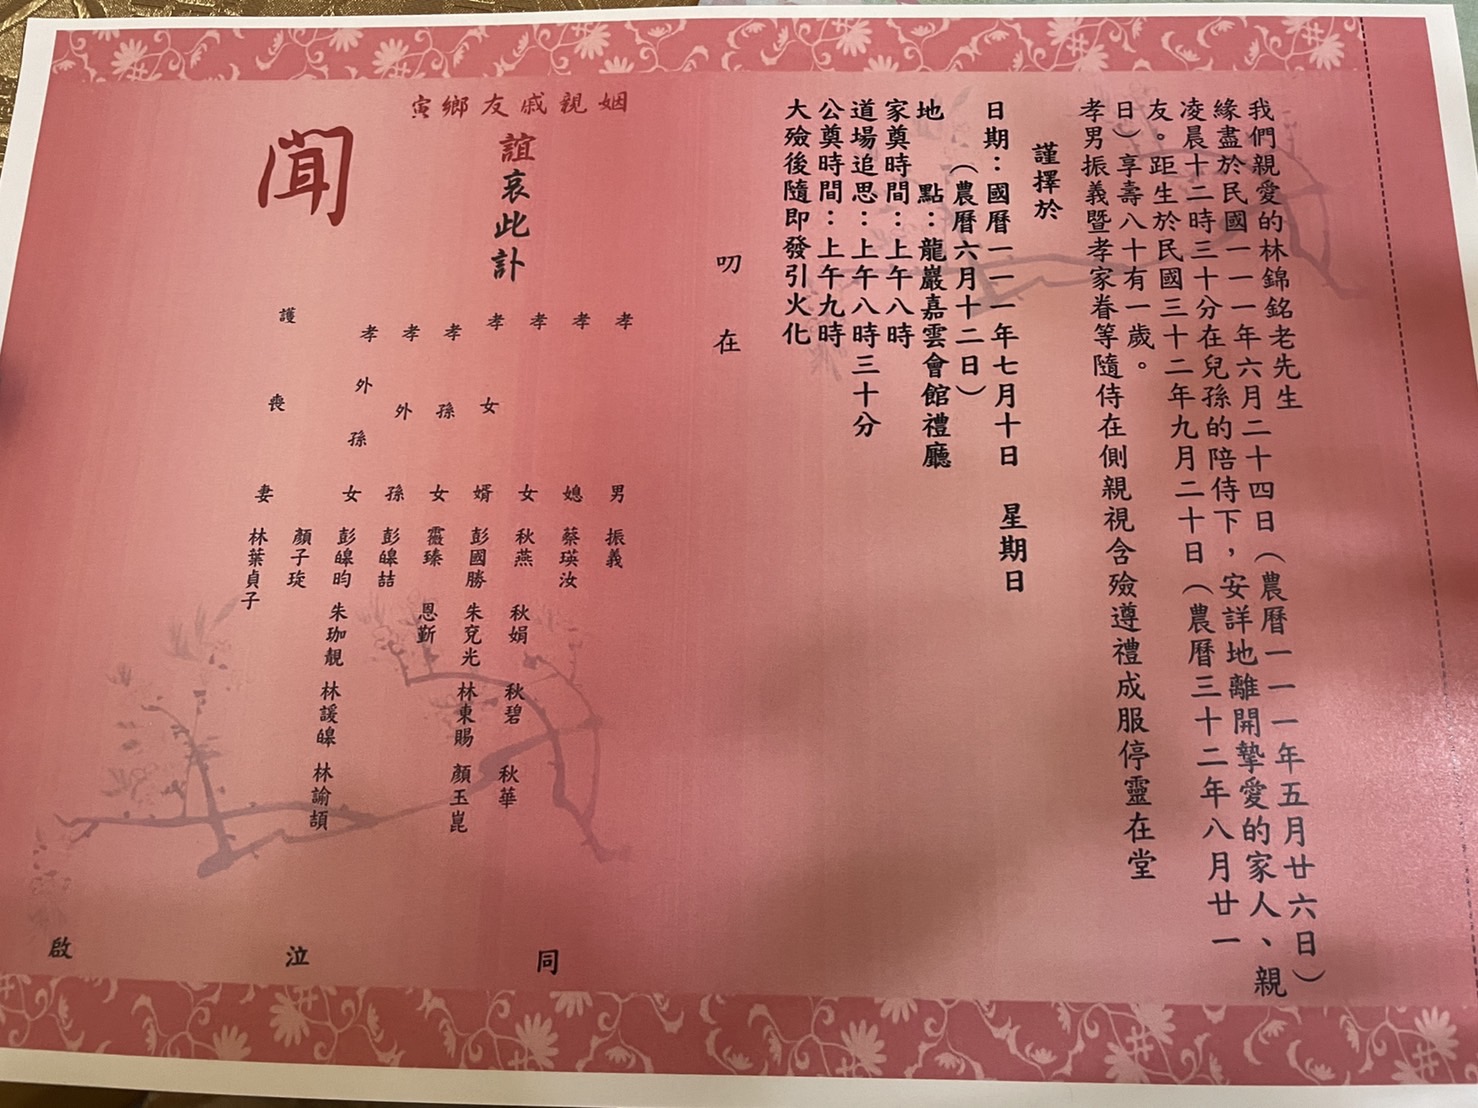 我們親愛的林錦銘老先生
緣盡於民國一一一年六月二十四日（農曆一一一年五月廿六日）
凌晨十二時三十分在兒孫的陪侍下，安詳地離開摯愛的家人、親
友。距生於民國三十二年九月二十日（農曆三十二年八月廿一
日）享壽八十有一歲。
孝男振義暨孝家眷等隨侍在側親視含殮遵禮成服停靈在堂
謹擇於
日期：國曆一一一年七月十日 星期日
（農曆六月十二日）
地 點：龍巖嘉雲會館禮廳
家奠時間：上午八時
道場追思：上午八時三十分
公奠時間：上午九時
大殮後隨即發引火化
叨在
姻親戚友鄉寅
誼哀此訃
聞
孝男 振義
孝媳 蔡瑛汝
孝女 秋燕 秋娟 秋碧 秋華
孝女婿 彭國勝 朱兗光 林東賜 顏玉崑
孝孫女 霺臻 恩靳
孝外孫 彭皞喆
孝外孫女 彭皞昀 朱珈靚 林諼皞 林諭頡
顏子琁
護喪妻 林葉貞子
同泣啟